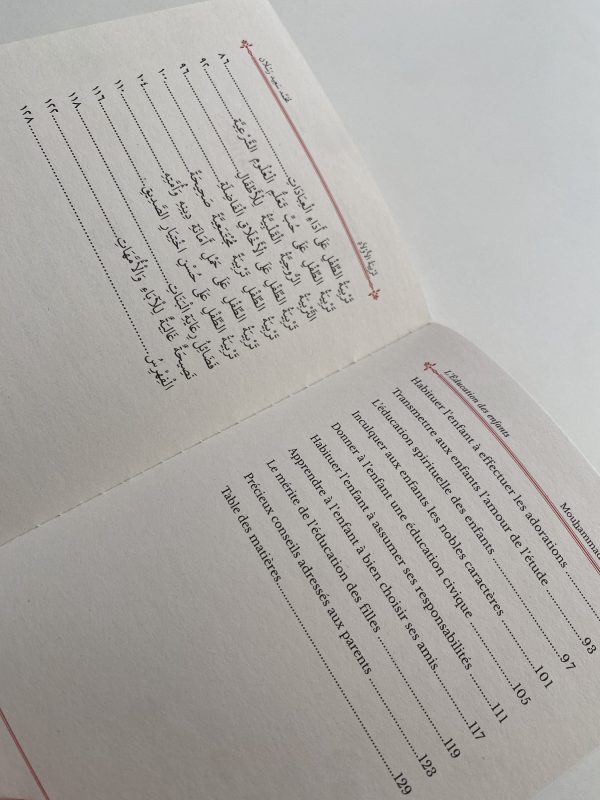 تَرْبِيَةُ الْأَوْلَادِ مُحَمَّد سَعِيد رَسْلَان
تَرْبِيَةُ الطِّفْلِ عَلَى أَدَاءِ الْعِبَادَاتِ ........ ٨٦
تَرْبِيَةُ الطِّفْلِ عَلَى حُبِّ تَعَلُّمِ الْعُلُومِ الشَّرْعِيَّةِ ........ ٩٢
التَّرْبِيَةُ الرُّوحِيَّةُ الْقَلْبِيَّةُ لِلْأَطْفَالِ ........ ٩٦
تَرْبِيَةُ الطِّفْلِ عَلَى الْأَخْلَاقِ الْفَاضِلَةِ ........ ١٠٠
تَرْبِيَةُ الطِّفْلِ تَرْبِيَةً مُجْتَمَعِيَّةً صَحِيحَةً ........ ١٠٤
تَرْبِيَةُ الطِّفْلِ عَلَى حَمْلِ أَمَانَةِ دِينِهِ وَأُمَّتِهِ ........ ١١٠
تَرْبِيَةُ الطِّفْلِ عَلَى حُسْنِ اخْتِيَارِ الصَّدِيقِ ........ ١١٦
فَضَائِلُ رِعَايَةِ الْبَنَاتِ ........ ١١٨
نَصِيحَةٌ غَالِيَةٌ لِلْآبَاءِ وَالْأُمَّهَاتِ ........ ١٢٢
الْفِهْرِسُ ........ ١٢٨
L'Éducation des enfants Mouhammad
Habituer l'enfant à effectuer les adorations ........
Transmettre aux enfants l'amour de l'étude ........ 93
L'éducation spirituelle des enfants ........ 97
Inculquer aux enfants les nobles caractères ........ 101
Donner à l'enfant une éducation civique ........ 105
Habituer l'enfant à assumer ses responsabilités ........ 111
Apprendre à l'enfant à bien choisir ses amis ........ 117
Le mérite de l'éducation des filles ........ 119
Précieux conseils adressés aux parents ........ 123
Table des matières ........ 129